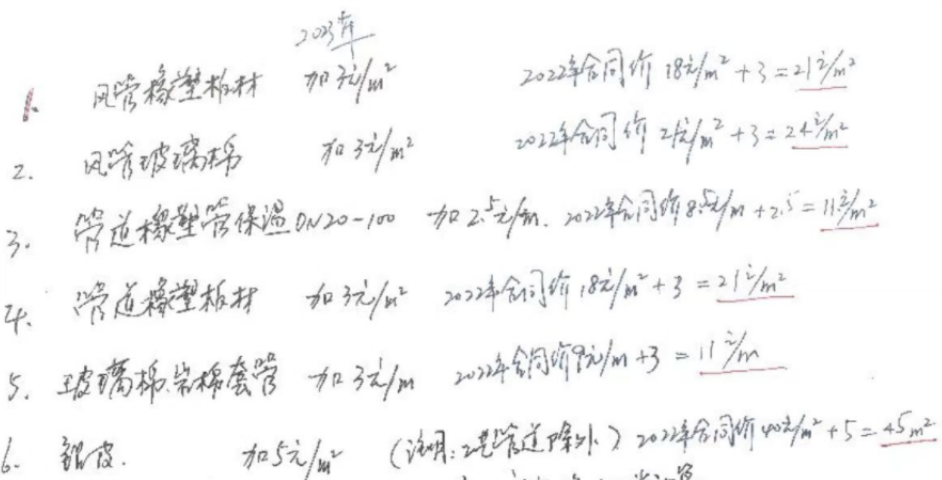 2023年
1. 风管橡塑板材 加3元/m² 2022年合同价 18元/m² + 3 = 21元/m²
2. 风管玻璃棉 加3元/m² 2022年合同价 21元/m² + 3 = 24元/m²
3. 管道橡塑管保温DN20-100 加2.5元/m. 2022年合同价8.5元/m + 2.5 = 11元/m²
4. 管道橡塑板材 加3元/m² 2022年合同价 18元/m² + 3 = 21元/m²
5. 玻璃棉.岩棉套管 加3元/m 2022年合同价 元/m + 3 = 11元/m
6. 铝皮. 加5元/m² (说明: 管道除外.) 2022年合同价 40元/m² + 5 = 45m²